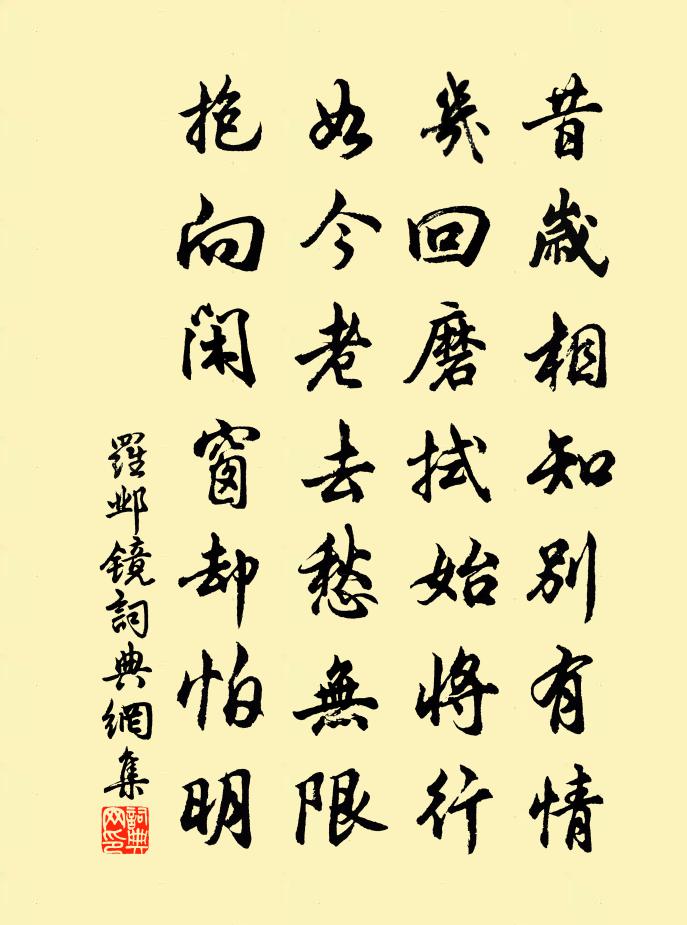 昔歲相知別有情
幾回磨拭始將行
如今老去愁無限
抱向閑窗却怕明
羅鄴鏡詞典網集
詞典网印